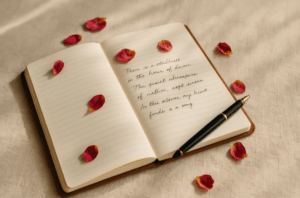 There is a stillness
in the hour of dawn
The quiet whispers
of nature, wept
In this silence, my heart
finds is a song.